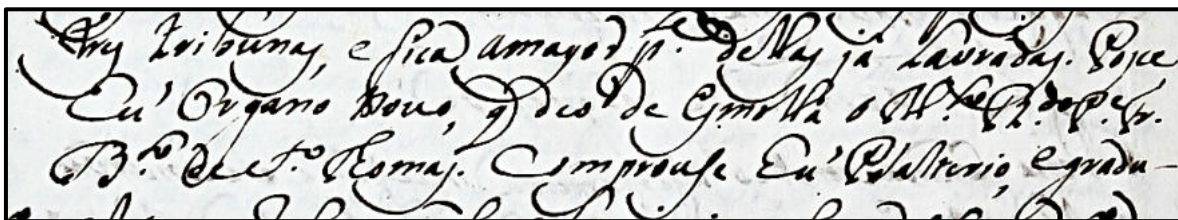 tres tribunas, e fica amayor p.te dellas já lavradas. Posce
hu' Organo novo, q̃ deo de esmolla o M.to R.do P.e Fr.
B.eo de S.to Thomas. Comprouse hu' Psalterio, e gradu-